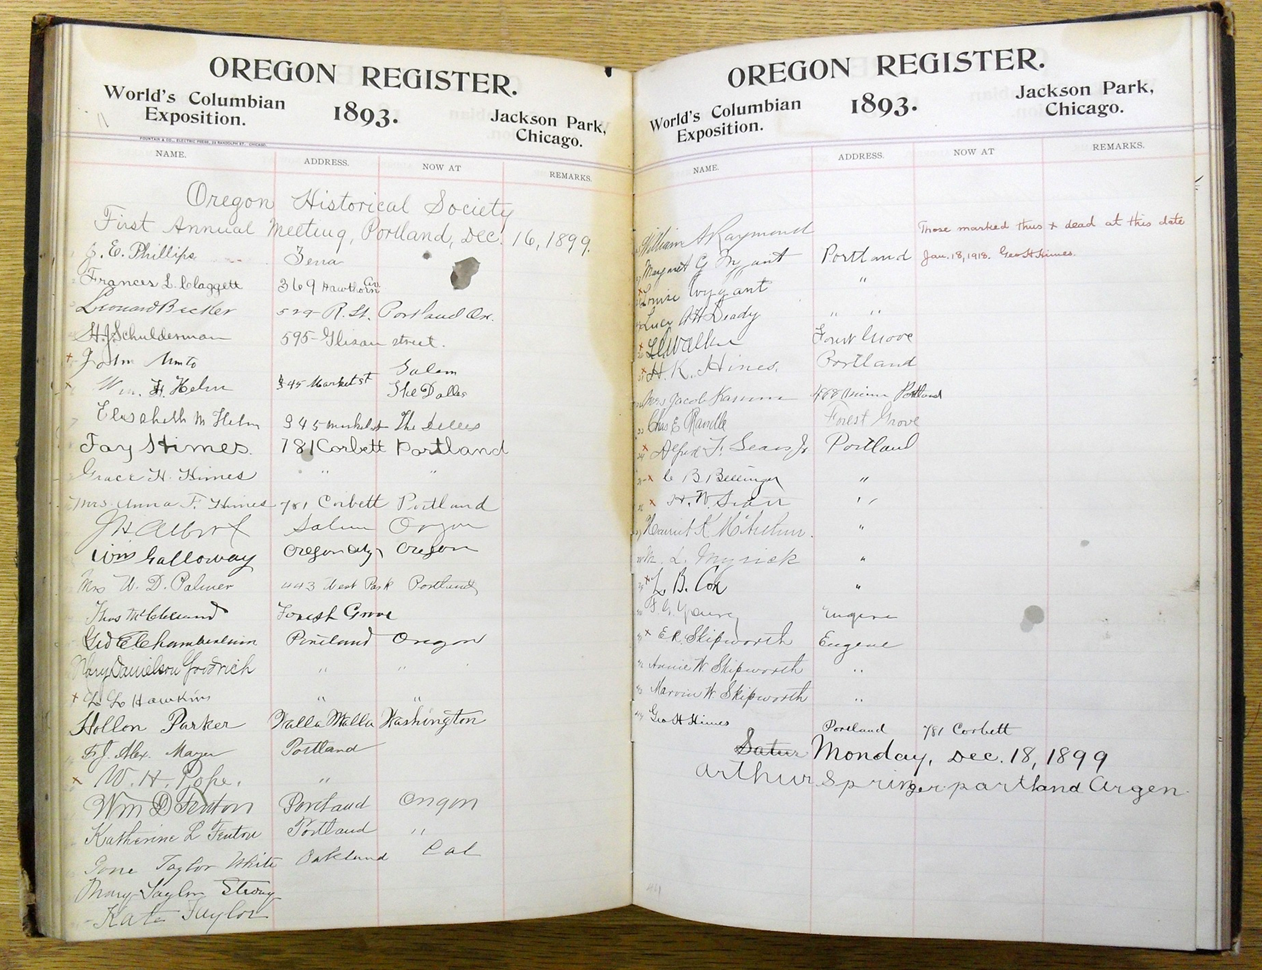 OREGON REGISTER.
World's Columbian Exposition.
1893.
Jackson Park, Chicago.
NAME. ADDRESS. NOW AT REMARKS.
Oregon Historical Society
First Annual Meeting, Portland, Dec. 16, 1899.
J. E. Phillips Zena
Frances L. Claggett 369 Hawthorn
Leonard Becker R. St. Portland Or.
H. J. Schulderman 595 Glisan street.
x John Minto Salem
x Wm. H. Helm 345 Market st The Dalles
Elisabeth M Helm 345 Market The Dalles
Fay Himes. 781 Corbett Portland
Grace H. Himes " "
Mrs Anna F. Himes 781 Corbett Portland
J H Albert Salem Oregon
Wm Galloway Oregon City Oregon
Mrs W. D. Palmer 443 West Park Portland
Thos McClelland Forest Grove
Geo Chamberlain Portland Oregon
Mary Danielson " "
x L L Hawkins " "
Hollon Parker Walla Walla Washington
Alex. Mayer Portland
x W. H. Pope. "
Wm D Fenton Portland Oregon
Katherine L Fenton Portland "
Taylor White Oakland Cal
Mary Taylor Strong
Kate Taylor
OREGON REGISTER.
World's Columbian Exposition.
1893.
Jackson Park, Chicago.
NAME. ADDRESS. NOW AT REMARKS.
Those marked thus x dead at this date
William Raymond
Jan. 18, 1918. Geo H Himes.
Margaret G Wygant Portland
x Louise Wygant "
Lucy A H Deady " "
x Walker Forest Grove
x H. K. Hines, Portland
Mrs Jacob Kamm Portland
Chas E Randle Forest Grove
x Alfred F. Sears Jr Portland
x C B Bellinger "
x H. W. Scott "
Harriet K McArthur. "
L. Myrick "
x L B. Cox "
F. G. Young Eugene
x E. R. Skipworth Eugene
Annie W Skipworth "
Marvin W Skipworth "
Geo H Himes Portland 781 Corbett
Satur Monday, Dec. 18, 1899
arthur springer partland argen